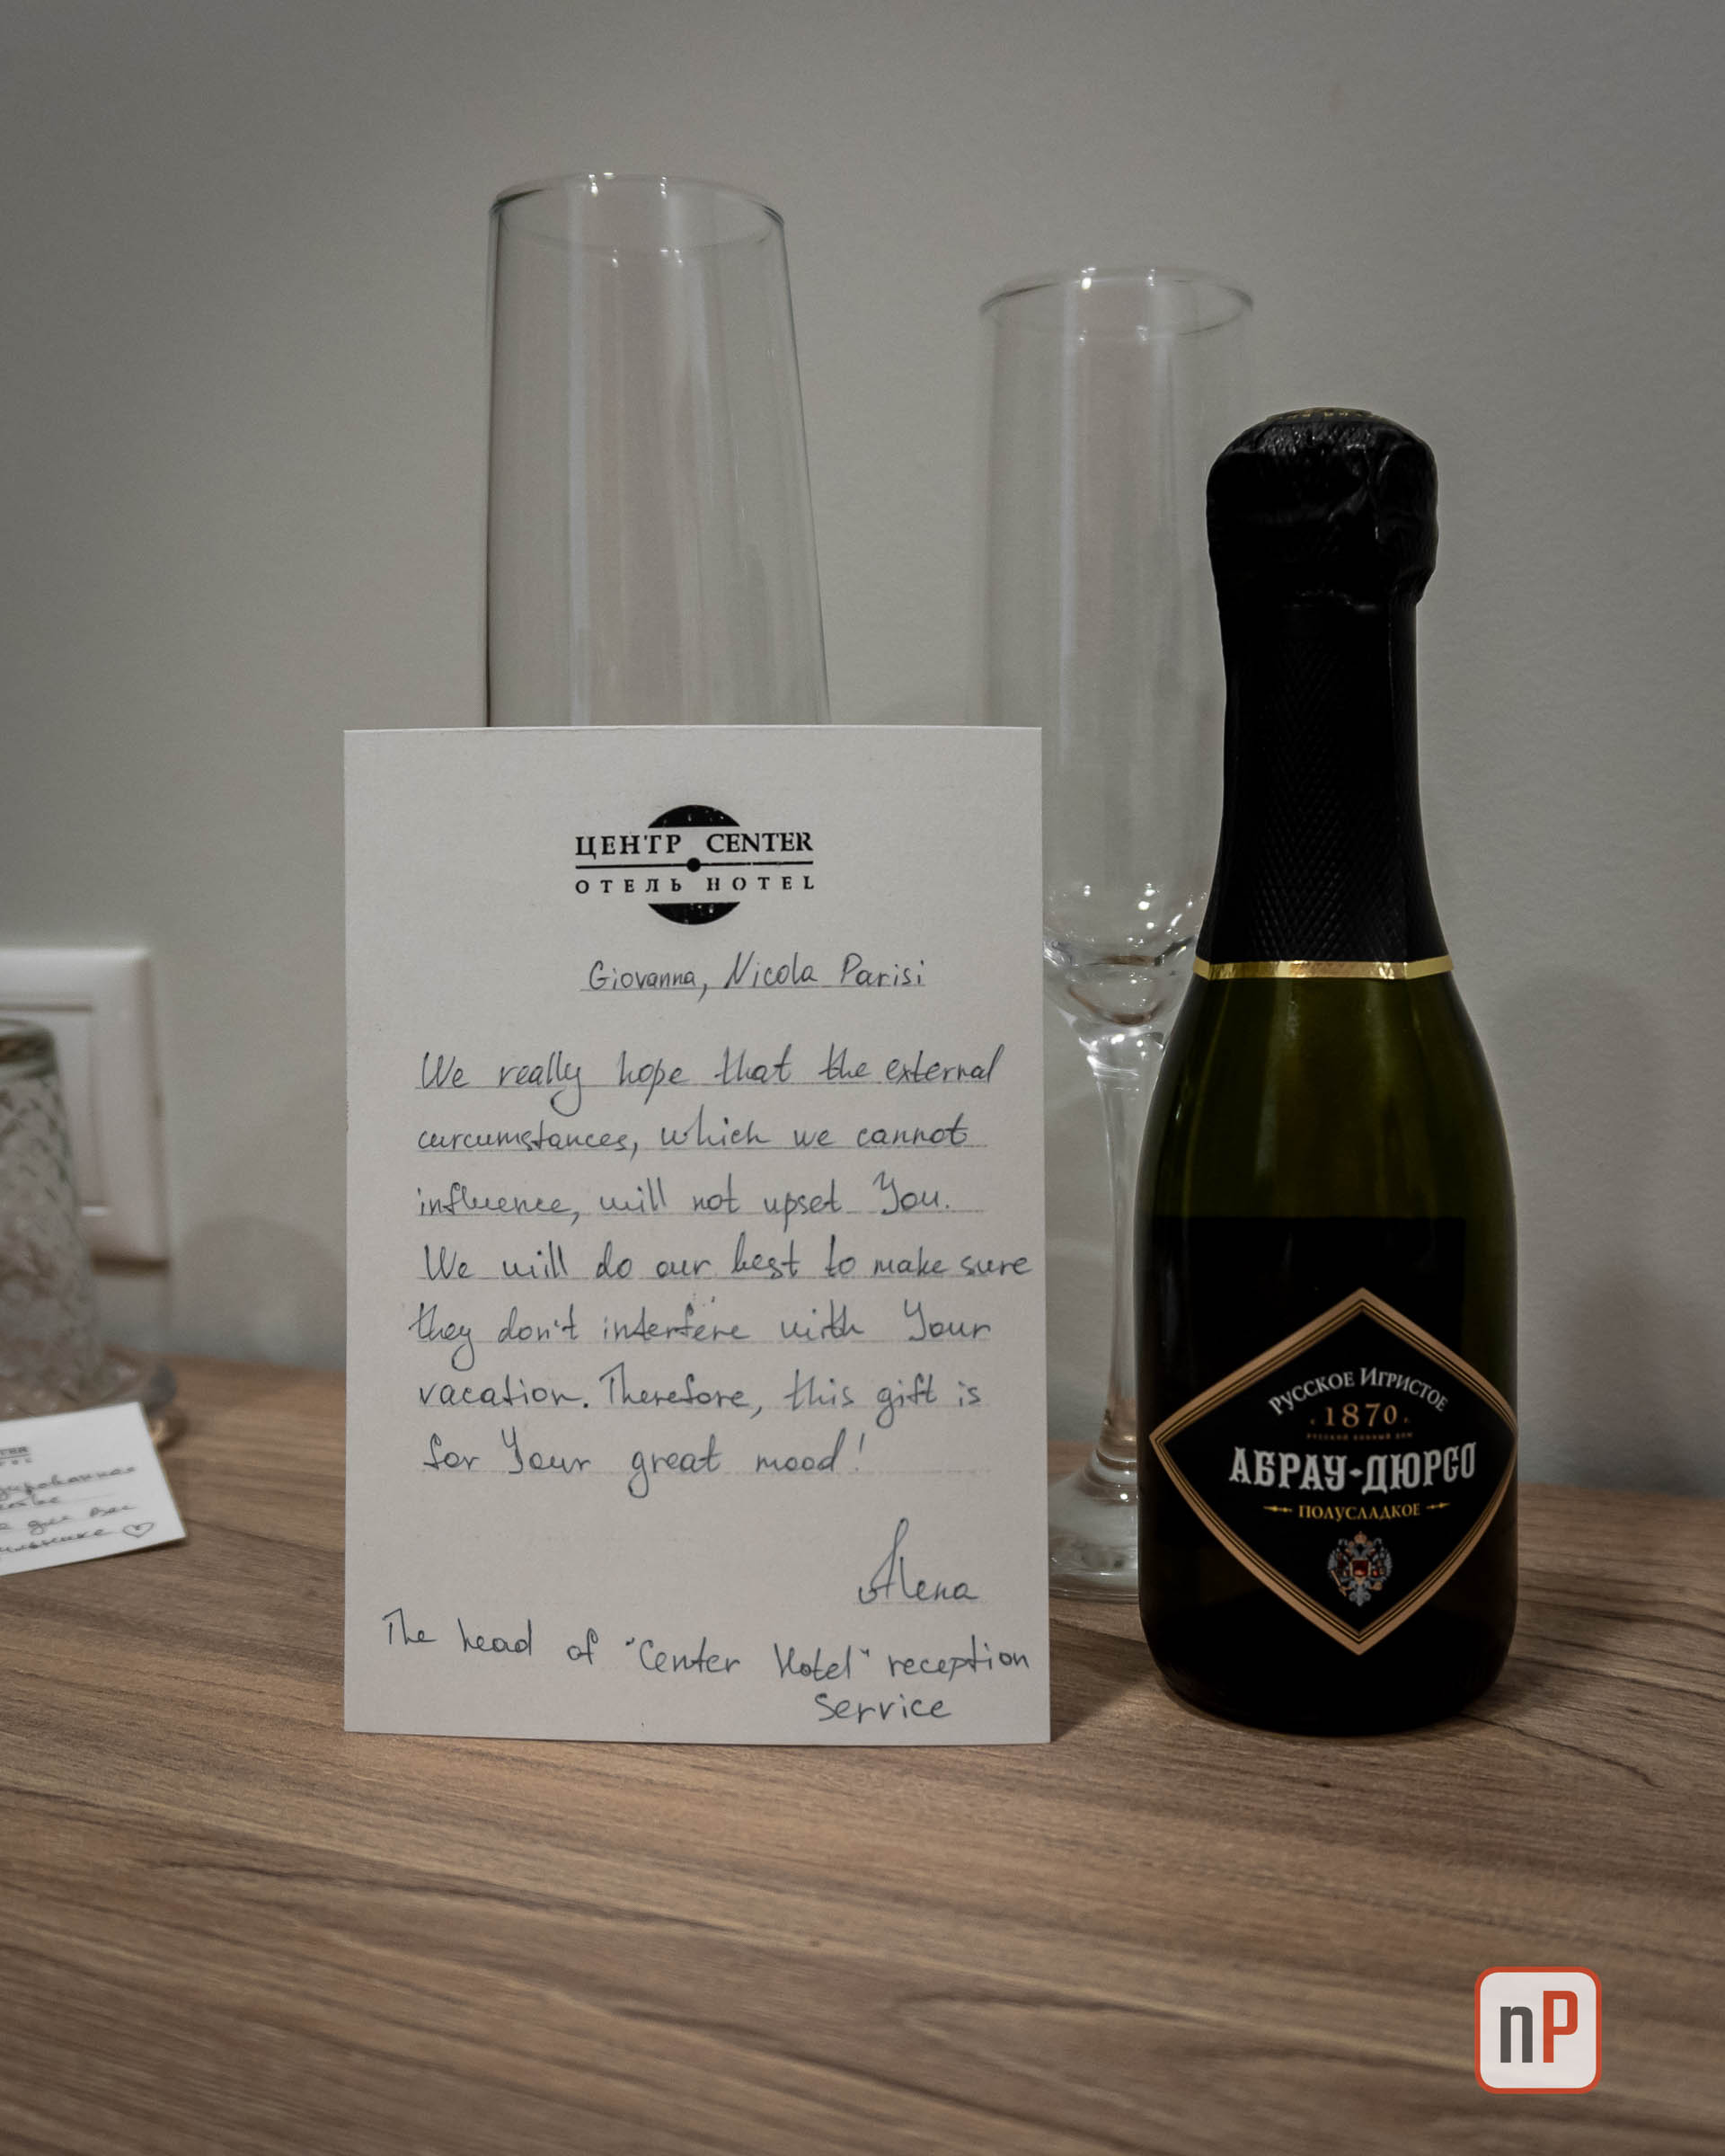 ЦЕНТР CENTER
ОТЕЛЬ HOTEL
Giovanna, Nicola Parisi
We really hope that the external
curcumstances, which we cannot
influence, will not upset You.
We will do our best to make sure
they don't interfere with Your
vacation. Therefore, this gift is
for Your great mood!
Alena
The head of "Center Hotel" reception
Service
РУССКОЕ ИГРИСТОЕ
1870
РУССКИЙ ВИННЫЙ ДОМ
АБРАУ-ДЮРСО
ПОЛУСЛАДКОЕ
для Вас
nP